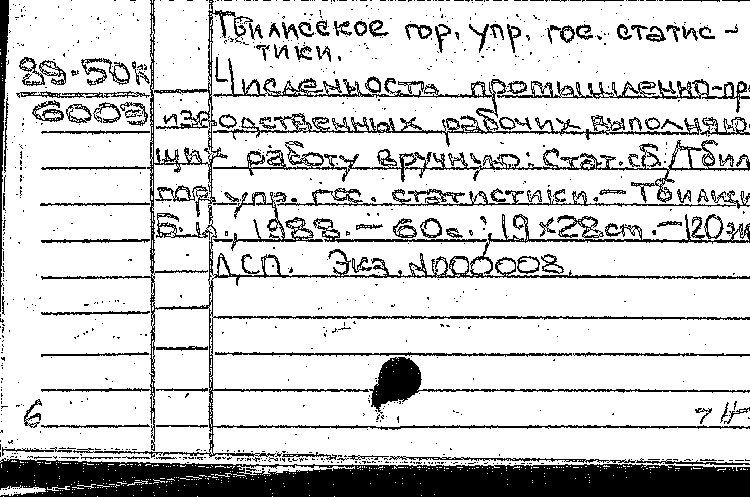 Тбилисское гор. упр. гос. статис-
тики.
89-50к
6003
Численность промышленно-пр
изводственных рабочих, выполняю
щих работу вручную: Стат.сб./Тбил
гор. упр. гос. статистики.— Тбилиси
Б.и., 1988.— 60с.; 19х28см.— 120эк
ДСП. Экз. N000008.
6